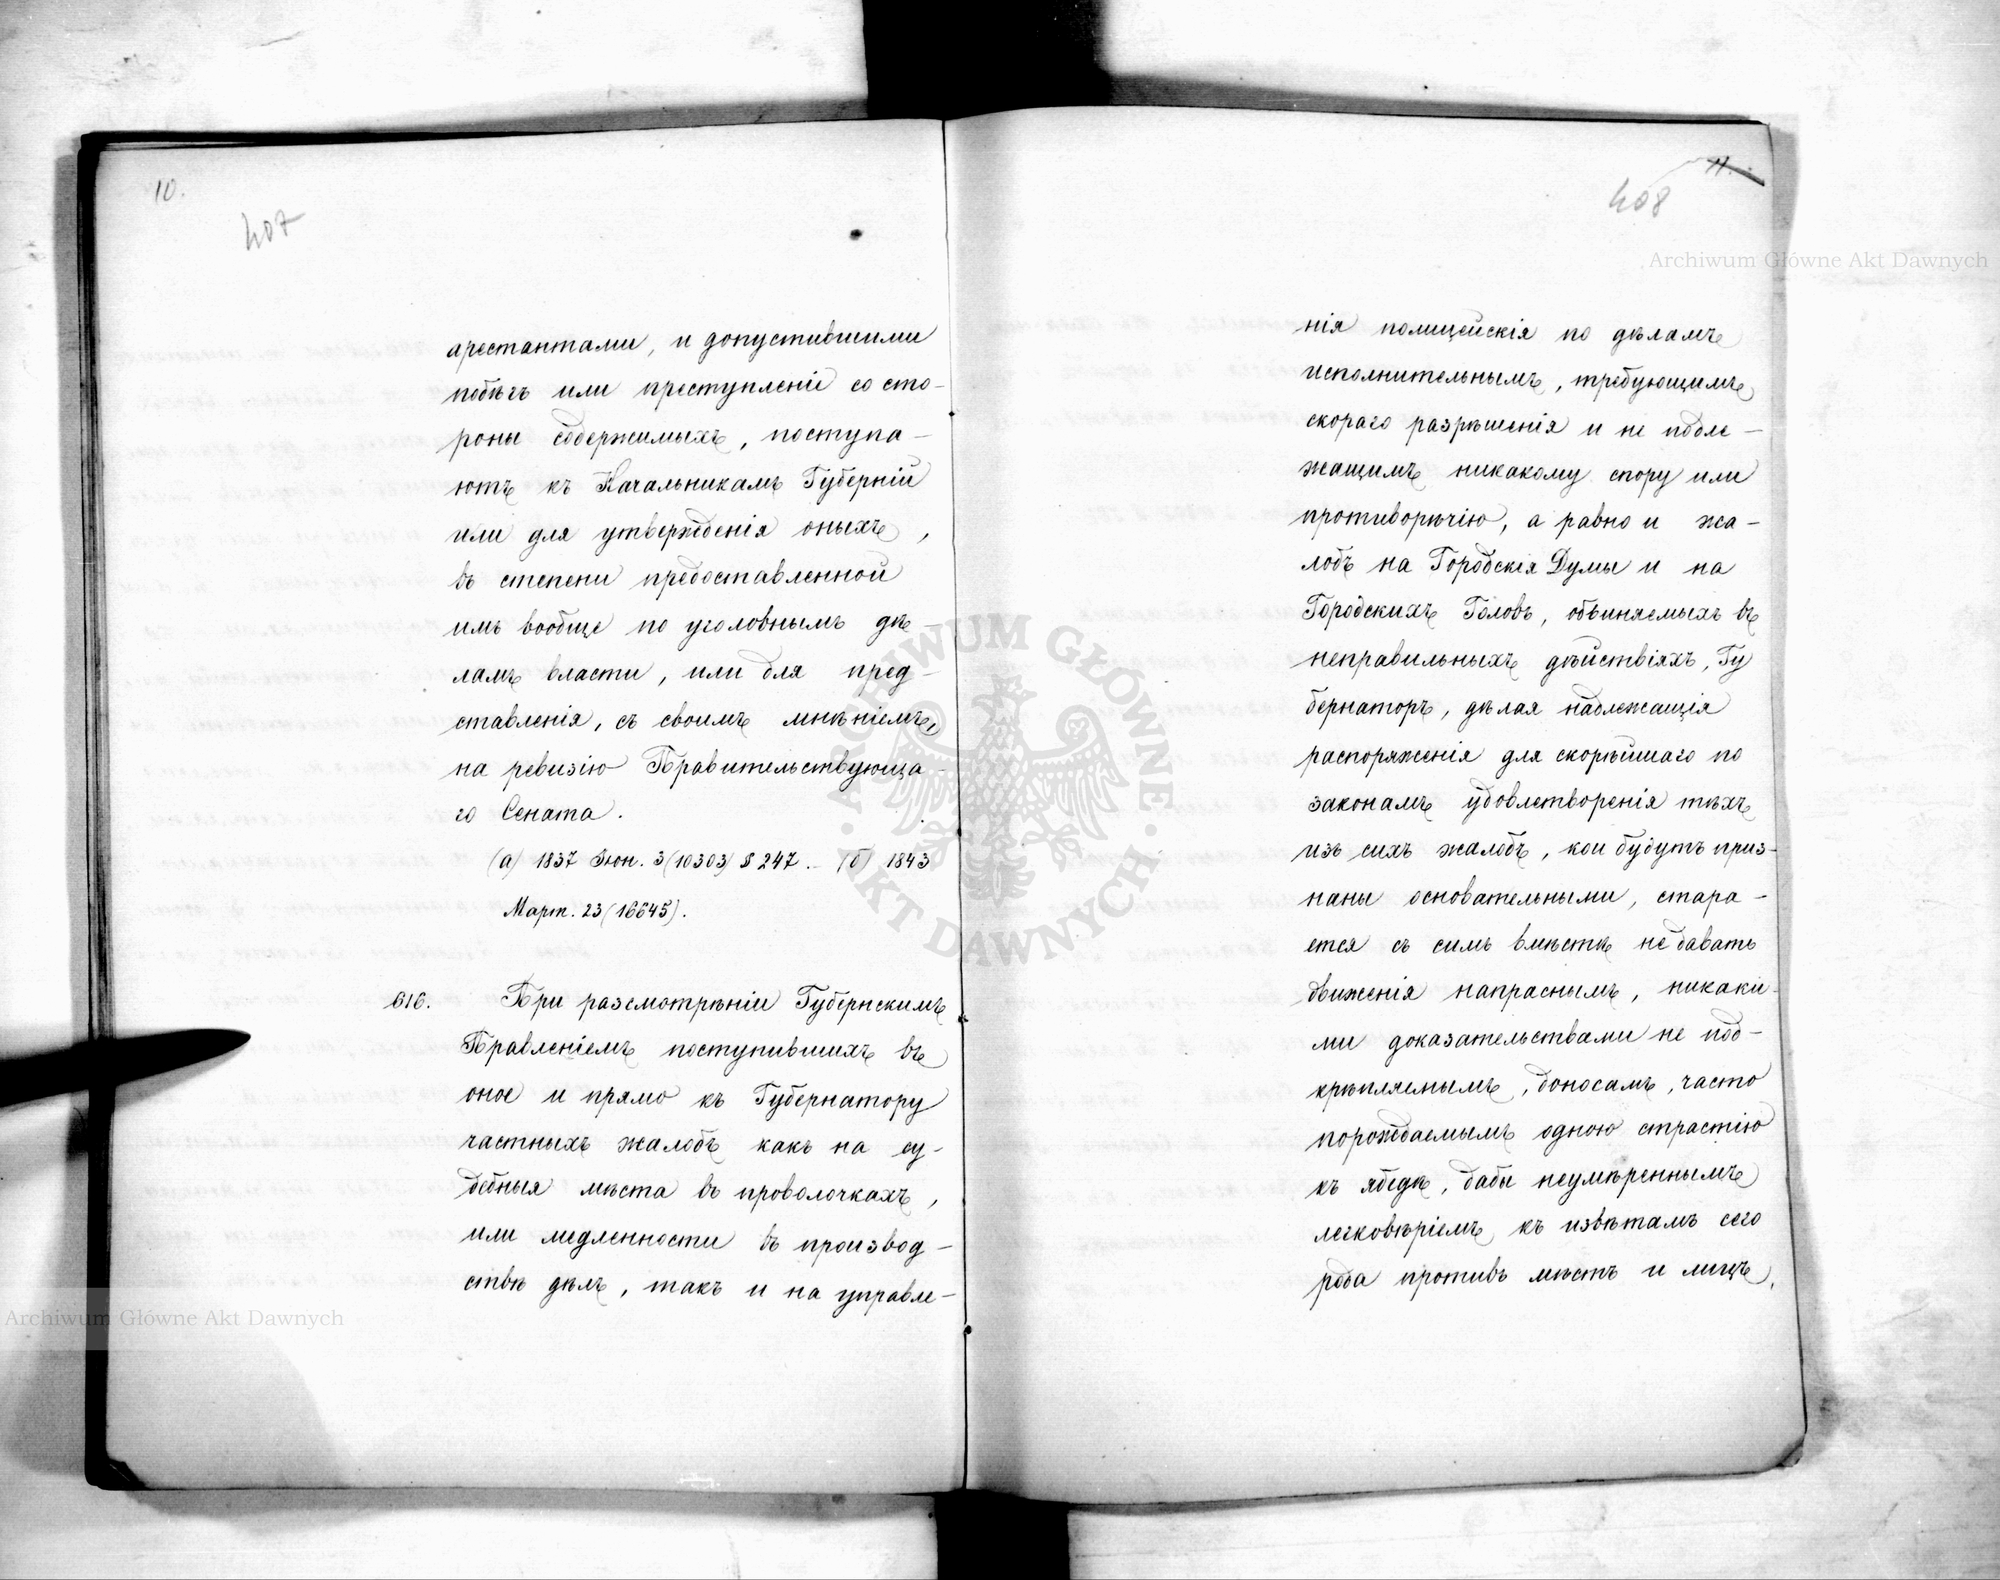 10.
407
арестантами, и допустившими
побѣгъ или преступленіе со сто-
роны содержимыхъ, поступа-
ютъ къ Начальникамъ Губерній
или для утвержденія оныхъ,
въ степени предоставленной
имъ вообще по уголовнымъ дѣ-
ламъ власти, или для пред-
ставленія, съ своимъ мнѣніемъ,
на ревизію Правительствующа-
го Сената.
(а) 1837 Іюн. 3 (10303) § 247. – (б) 1843
Март. 23 (16645).
616. При разсмотрѣніи Губернскимъ
Правленіемъ поступившихъ въ
оное и прямо къ Губернатору
частныхъ жалобъ какъ на су-
дебныя мѣста въ проволочкахъ,
или медленности въ производ-
ствѣ дѣлъ, такъ и на управле-
11.
408
нія полицейскія по дѣламъ
исполнительнымъ, требующимъ
скораго разрѣшенія и не подле-
жащимъ никакому спору или
противорѣчію, а равно и жа-
лобъ на Городскія Думы и на
Городскихъ Головъ, обвиняемыхъ въ
неправильныхъ дѣйствіяхъ, Гу
бернаторъ, дѣлая надлежащія
распоряженія для скорѣйшаго по
законамъ удовлетворенія тѣхъ
изъ сихъ жалобъ, кои будутъ приз-
наны основательными, стара-
ется съ симъ вмѣстѣ не давать
движенія напраснымъ, никаки-
ми доказательствами не под-
крѣпляемымъ, доносамъ, часто
порождаемымъ одною страстію
къ ябедѣ, дабы неумѣреннымъ
легковѣріемъ къ извѣтамъ сего
рода противъ мѣстъ и лицъ,
Archiwum Główne Akt Dawnych
Archiwum Główne Akt Dawnych
ARCHIWUM GŁÓWNE AKT DAWNYCH